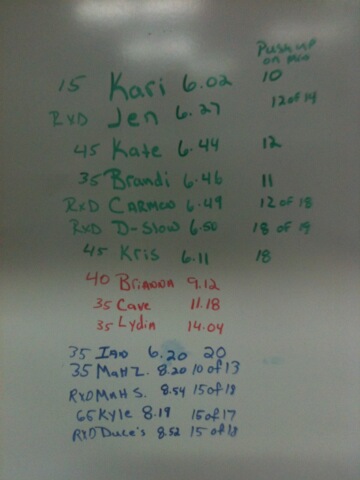 Push up
on min
15 Kari 6.02 10
RxD Jen 6.27 12 of 14
45 Kate 6.44 12
35 Brandi 6.46 11
RxD Carmen 6.49 12 of 18
RxD D-Slow 6.50 18 of 19
45 Kris 6.11 18
40 Brianna 9.12
35 Cave 11.18
35 Lydia 14.04
35 Ian 6.20 20
35 Matt Z. 8.20 10 of 13
RxD Matt S. 8.54 15 of 18
65 Kyle 8.19 15 of 17
RxD Duce's 8.52 15 of 18